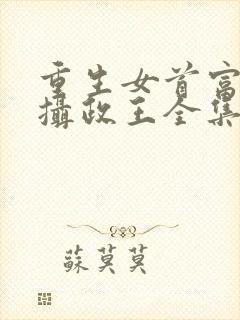 重生女首富
攝政王全集
蘇莫莫